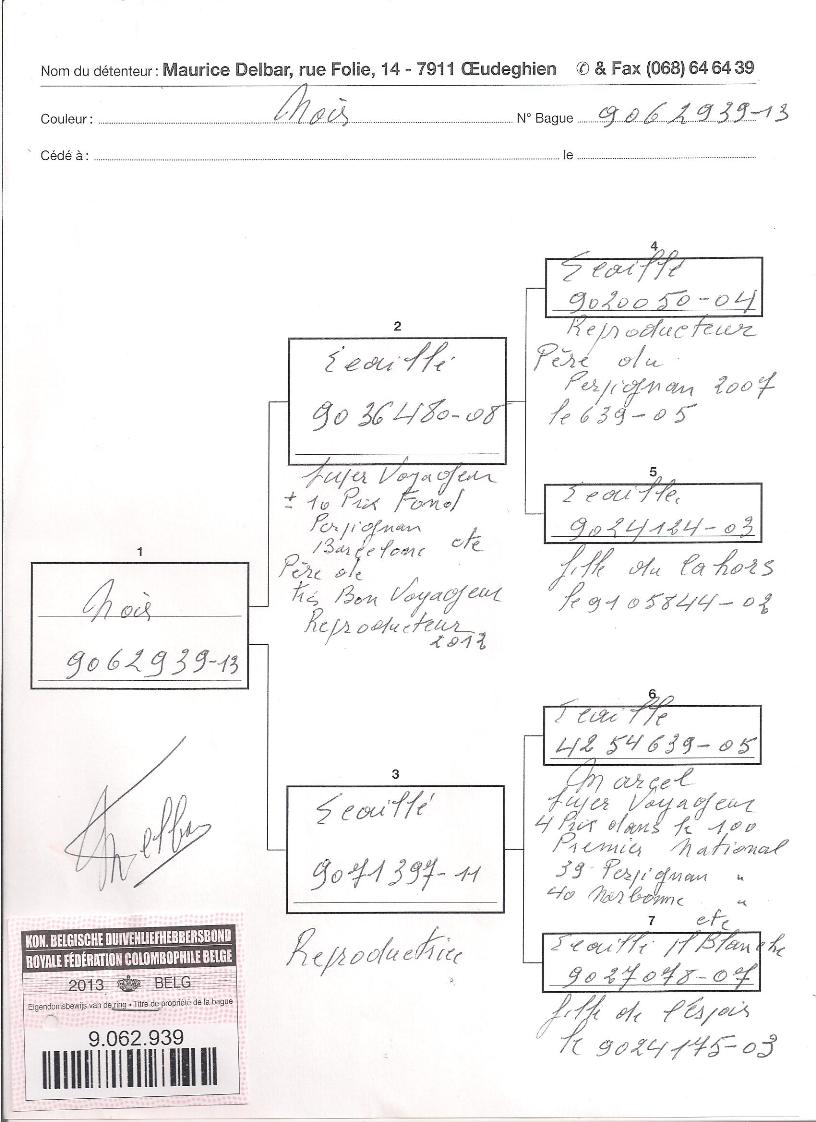 Nom du détenteur : Maurice Delbar, rue Folie, 14 - 7911 Œudeghien ✆ & Fax (068) 64 64 39
Couleur : Noir N° Bague 9062939-13
Cédé à : le
4
Ecaillé
9020050-04
Reproducteur
Père du
Perpignan 2007
le 639-05
2
Ecaillé
9036480-08
Super Voyageur
± 10 Prix Fond
Perpignan
Barcelone etc
Père de
très Bon Voyageur
Reproducteur
2012
5
Ecaillé
9024124-03
fille du Cahors
le 9105844-02
1
Noir
9062939-13
6
Ecaillé
4254639-05
Marcel
Super Voyageur
4 Prix dans le 100
Premier National
39 Perpignan "
40 Narbonne "
etc
3
Ecaillé
9071397-11
Reproductrice
7
Ecaillé Pl Blanche
9027078-07
fille de l'espoir
le 9024175-03
Delbar
KON. BELGISCHE DUIVENLIEFHEBBERSBOND
ROYALE FÉDÉRATION COLOMBOPHILE BELGE
2013 BELG
Eigendomsbewijs van de ring • Titre de propriété de la bague
9.062.939